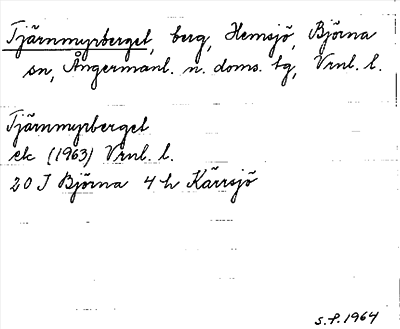 Tjärnmyrberget, berg, Hemsjö, Björna
sn, Ångermanl. n. doms. tg, Vrnl. l.
Tjärnmyrberget
ek (1963) Vrnl. l.
20 J Björna 4 h Kärrsjö
S.P. 1964